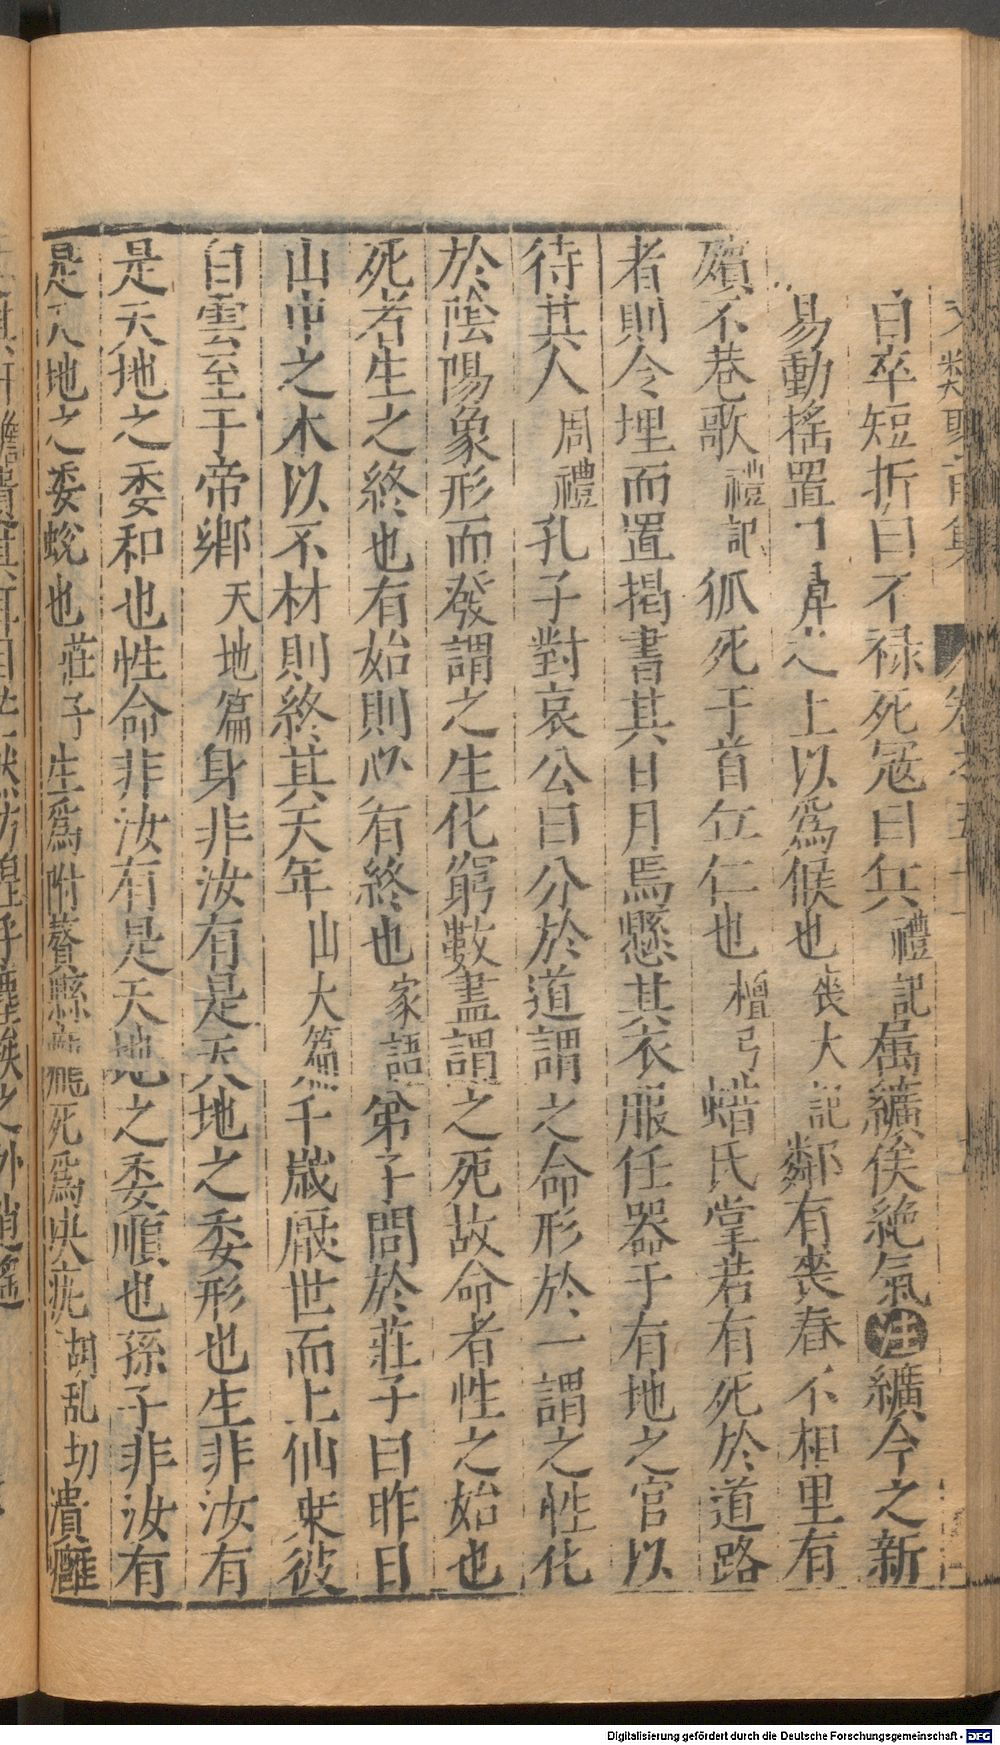 曰卒短折曰不禄死寇曰兵禮記屬纊俟絶氣注纊今之新
易動搖置口鼻之上以爲候也喪大記鄰有喪舂不相里有
殯不巷歌禮記狐死于首丘仁也檀弓蜡氏掌若有死於道路
者則令埋而置楬書其日月焉懸其衣服任器于有地之官以
待其人周禮孔子對哀公曰分於道謂之命形於一謂之性化
於陰陽象形而發謂之生化窮數盡謂之死故命者性之始也
死者生之終也有始則必有終也家語弟子問於莊子曰昨日
山中之木以不材則終其天年山大篇千歲厭世而上仙乘彼
白雲至于帝鄉天地篇身非汝有是天地之委形也生非汝有
是天地之委和也性命非汝有是天地之委順也孫子非汝有
是天地之委蛻也莊子生爲附贅縣疣死爲决疣胡乱切潰癰
Digitalisierung gefördert durch die Deutsche Forschungsgemeinschaft - DFG